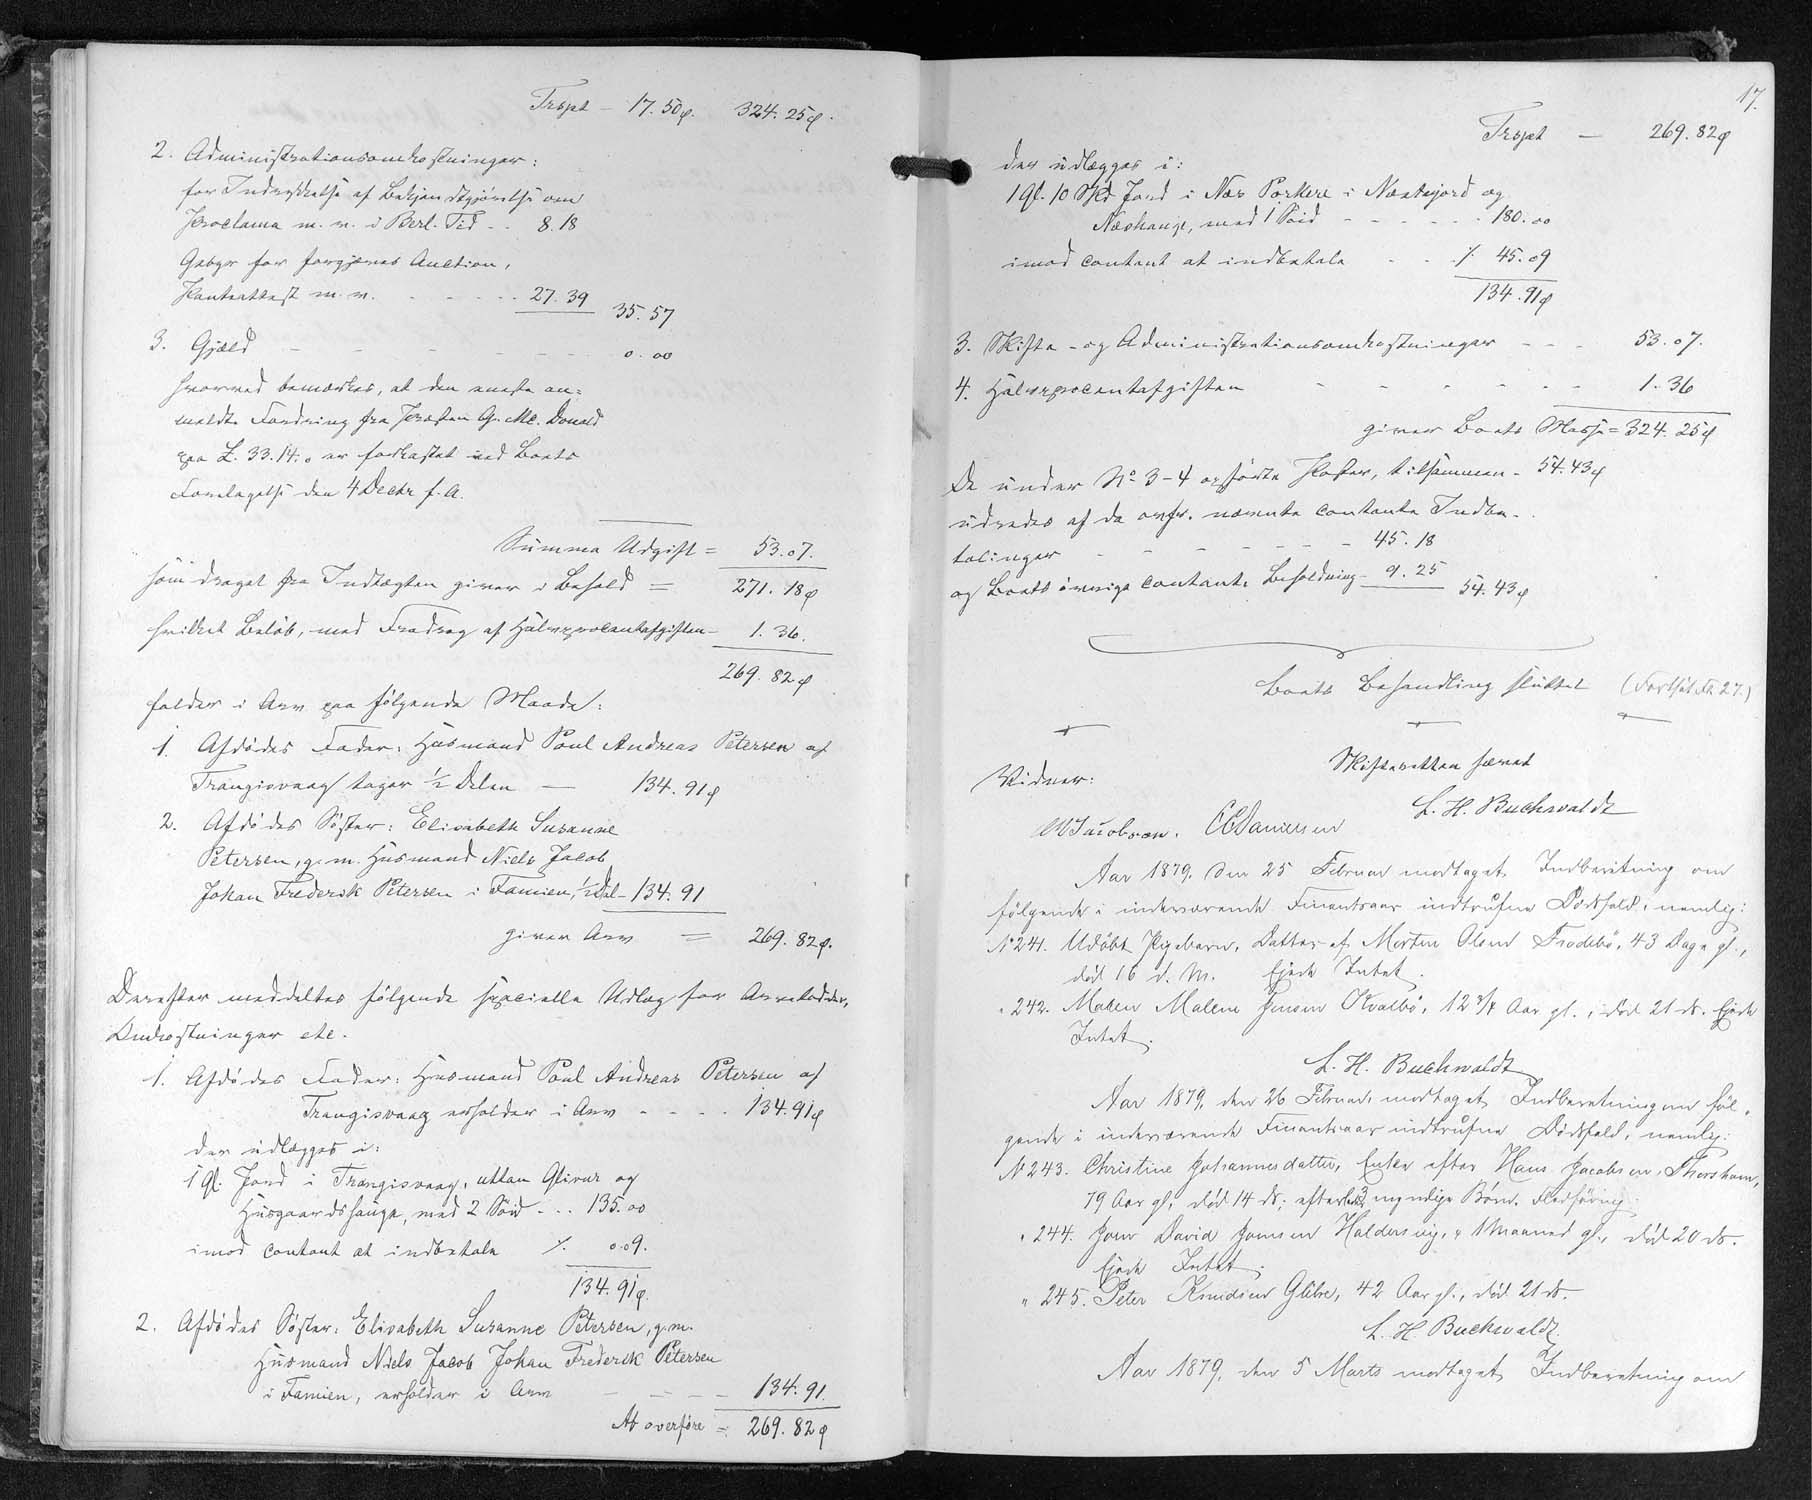 Trspt - 17.50 ø. 324.25 ø.
2. Administrationsomkostninger:
for Indrykkelse af Bekjendtgjørelse om
Proclama m. v. i Berl. Tid - - 8.18
Gebyr for forgjæves Auction,
Panteattest m. v. - - - - - 27.39 35.57
3. Gjæld - - - - - - 0.00
hvorved bemærkes, at den eneste an=
meldte Fordring fra Præsten G. Mc. Donald
paa £. 33.14.0 er forkastet ved Boets
Foretagelse den 4 Decbr f. A.
Summa Udgift = 53.07.
som draget fra Indtægten giver i Behold = 271.18 ø
hvilket Beløb, med Fradrag af Halvprocentafgiften - 1.36.
269.82 ø
falder i Arv paa følgende Maade:
1. Afdødes Fader: Husmand Poul Andreas Petersen af
Trangisvaag tager ½ Delen - 134.91 ø
2. Afdødes Søster: Elisabeth Susanne
Petersen, g. m. Husmand Niels Jacob
Johan Frederik Petersen i Famien, ½ Del - 134.91
giver Arv = 269.82 ø.
Derefter meddeltes følgende specielle Udlæg for Arvelodder,
Omkostninger etc.
1. Afdødes Fader: Husmand Poul Andreas Petersen af
Trangisvaag erholder i Arv - - - . 134.91 ø
der udlægges i:
1 Gl. Jord i Trangisvaag, uttan Glivur og
Husgaardshauge, med 2 Söid - . . 135.00
imod contant at indbetale ./. 0.09.
134.91 ø.
2. Afdødes Søster: Elisabeth Susanne Petersen, g. m.
Husmand Niels Jacob Johan Frederik Petersen
i Famien, erholder i Arv - - - - 134.91.
At overføre = 269.82 ø
17.
Trspt - 269.82 ø
der udlægges i:
1 Gl. 10 Skd Jord i Næs Porkere i og
med 1 Söid - - - - - 180.00
imod contant at indbetale - - ./. 45.09
134.91 ø
3. Skifte- og Administrationsomkostninger - - - 53.07.
4. Halvprocentafgiften - - - - - - 1.36
giver Boets Masse = 324.25 ø
De under No 3-4 opførte Poster, tilsammen - 54.43 ø
udredes af de ovfr. nævnte contante Indbe-
talinger - - - - - - - 45.18
og Boets øvrige contante Beholdning - 9.25 54.43 ø
Boets Behandling sluttet (Forts. at Fol. 27.)
Skifteretten hævet
Vidner:
L. H. Buchwaldt
W Jacobsen. Danielsen
Aar 1879, den 25 Februar modtaget Indberetning om
følgende i indeværende Finantsaar indtrufne Dødsfald, nemlig:
No 241. Udöbt Pigebarn, Datter af Morten Olsen Frodebö, 43 Dage gl.,
död 16 d. M. Ejede Intet.
" 242. Maren Malene Jensen Kvalbö, 12 ¾ Aar gl., död 21 ds. Ejede
Intet.
L. H. Buchwaldt
Aar 1879, den 26 Februar modtaget Indberetning om föl-
gende i indeværende Finantsaar indtrufne Dödsfald, nemlig:
No 243. Christine Johannesdatter, Enke efter Hans Jacobsen, Thorshavn,
79 Aar gl., död 14 ds; efterlod 3 myndige Börn.
" 244. Joen David Joensen Haldersvig, 1 Maaned gl., död 20 ds.
Ejede Intet.
" 245. Peter Knudsen Glibre, 42 Aar gl., död 21 ds.
L. H Buchwaldt.
Aar 1879, den 5 Marts modtaget Indberetning om